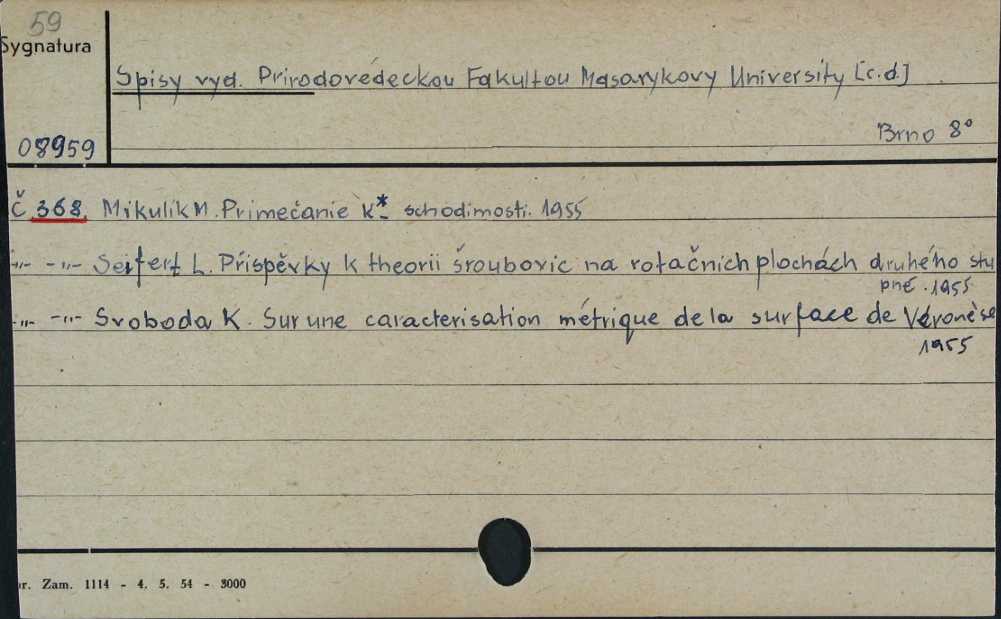 59
Sygnatura
Spisy vyd. Prirodovédeckou Fakultou Masarykovy University [c.d.]
Brno 8°
08959
Č 368. Mikulik M. Primečanie k*- schodimosti. 1955
-"- -"- Seifert L. Přispěvky k theorii šroubovic na rotačnich plochách druhého stu
pně. 1955
-"- -"- Svoboda K. Sur une caracterisation métrique de la surface de Véronèse
1955
r. Zam. 1114 - 4. 5. 54 - 3000